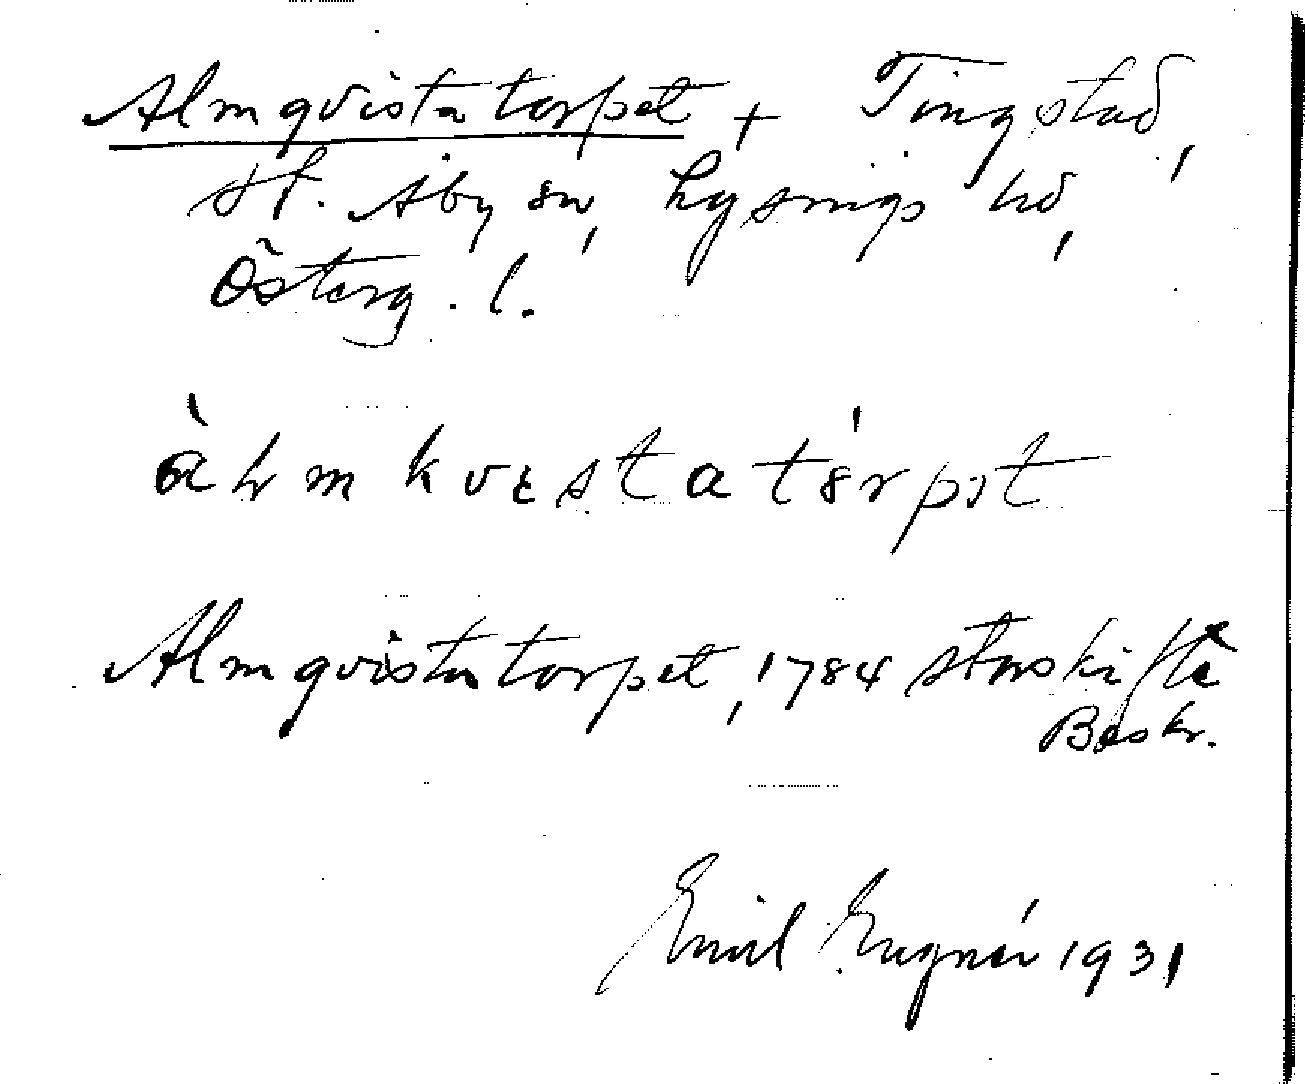 Almqvistatorpet + Tingstad,
st. Åby sn, Lysings hd,
Österg. l.
àlmkvɛstatórpət
Almqvistatorpet, 1784 storskifte
Beskr.
Emil Eugnér 1931